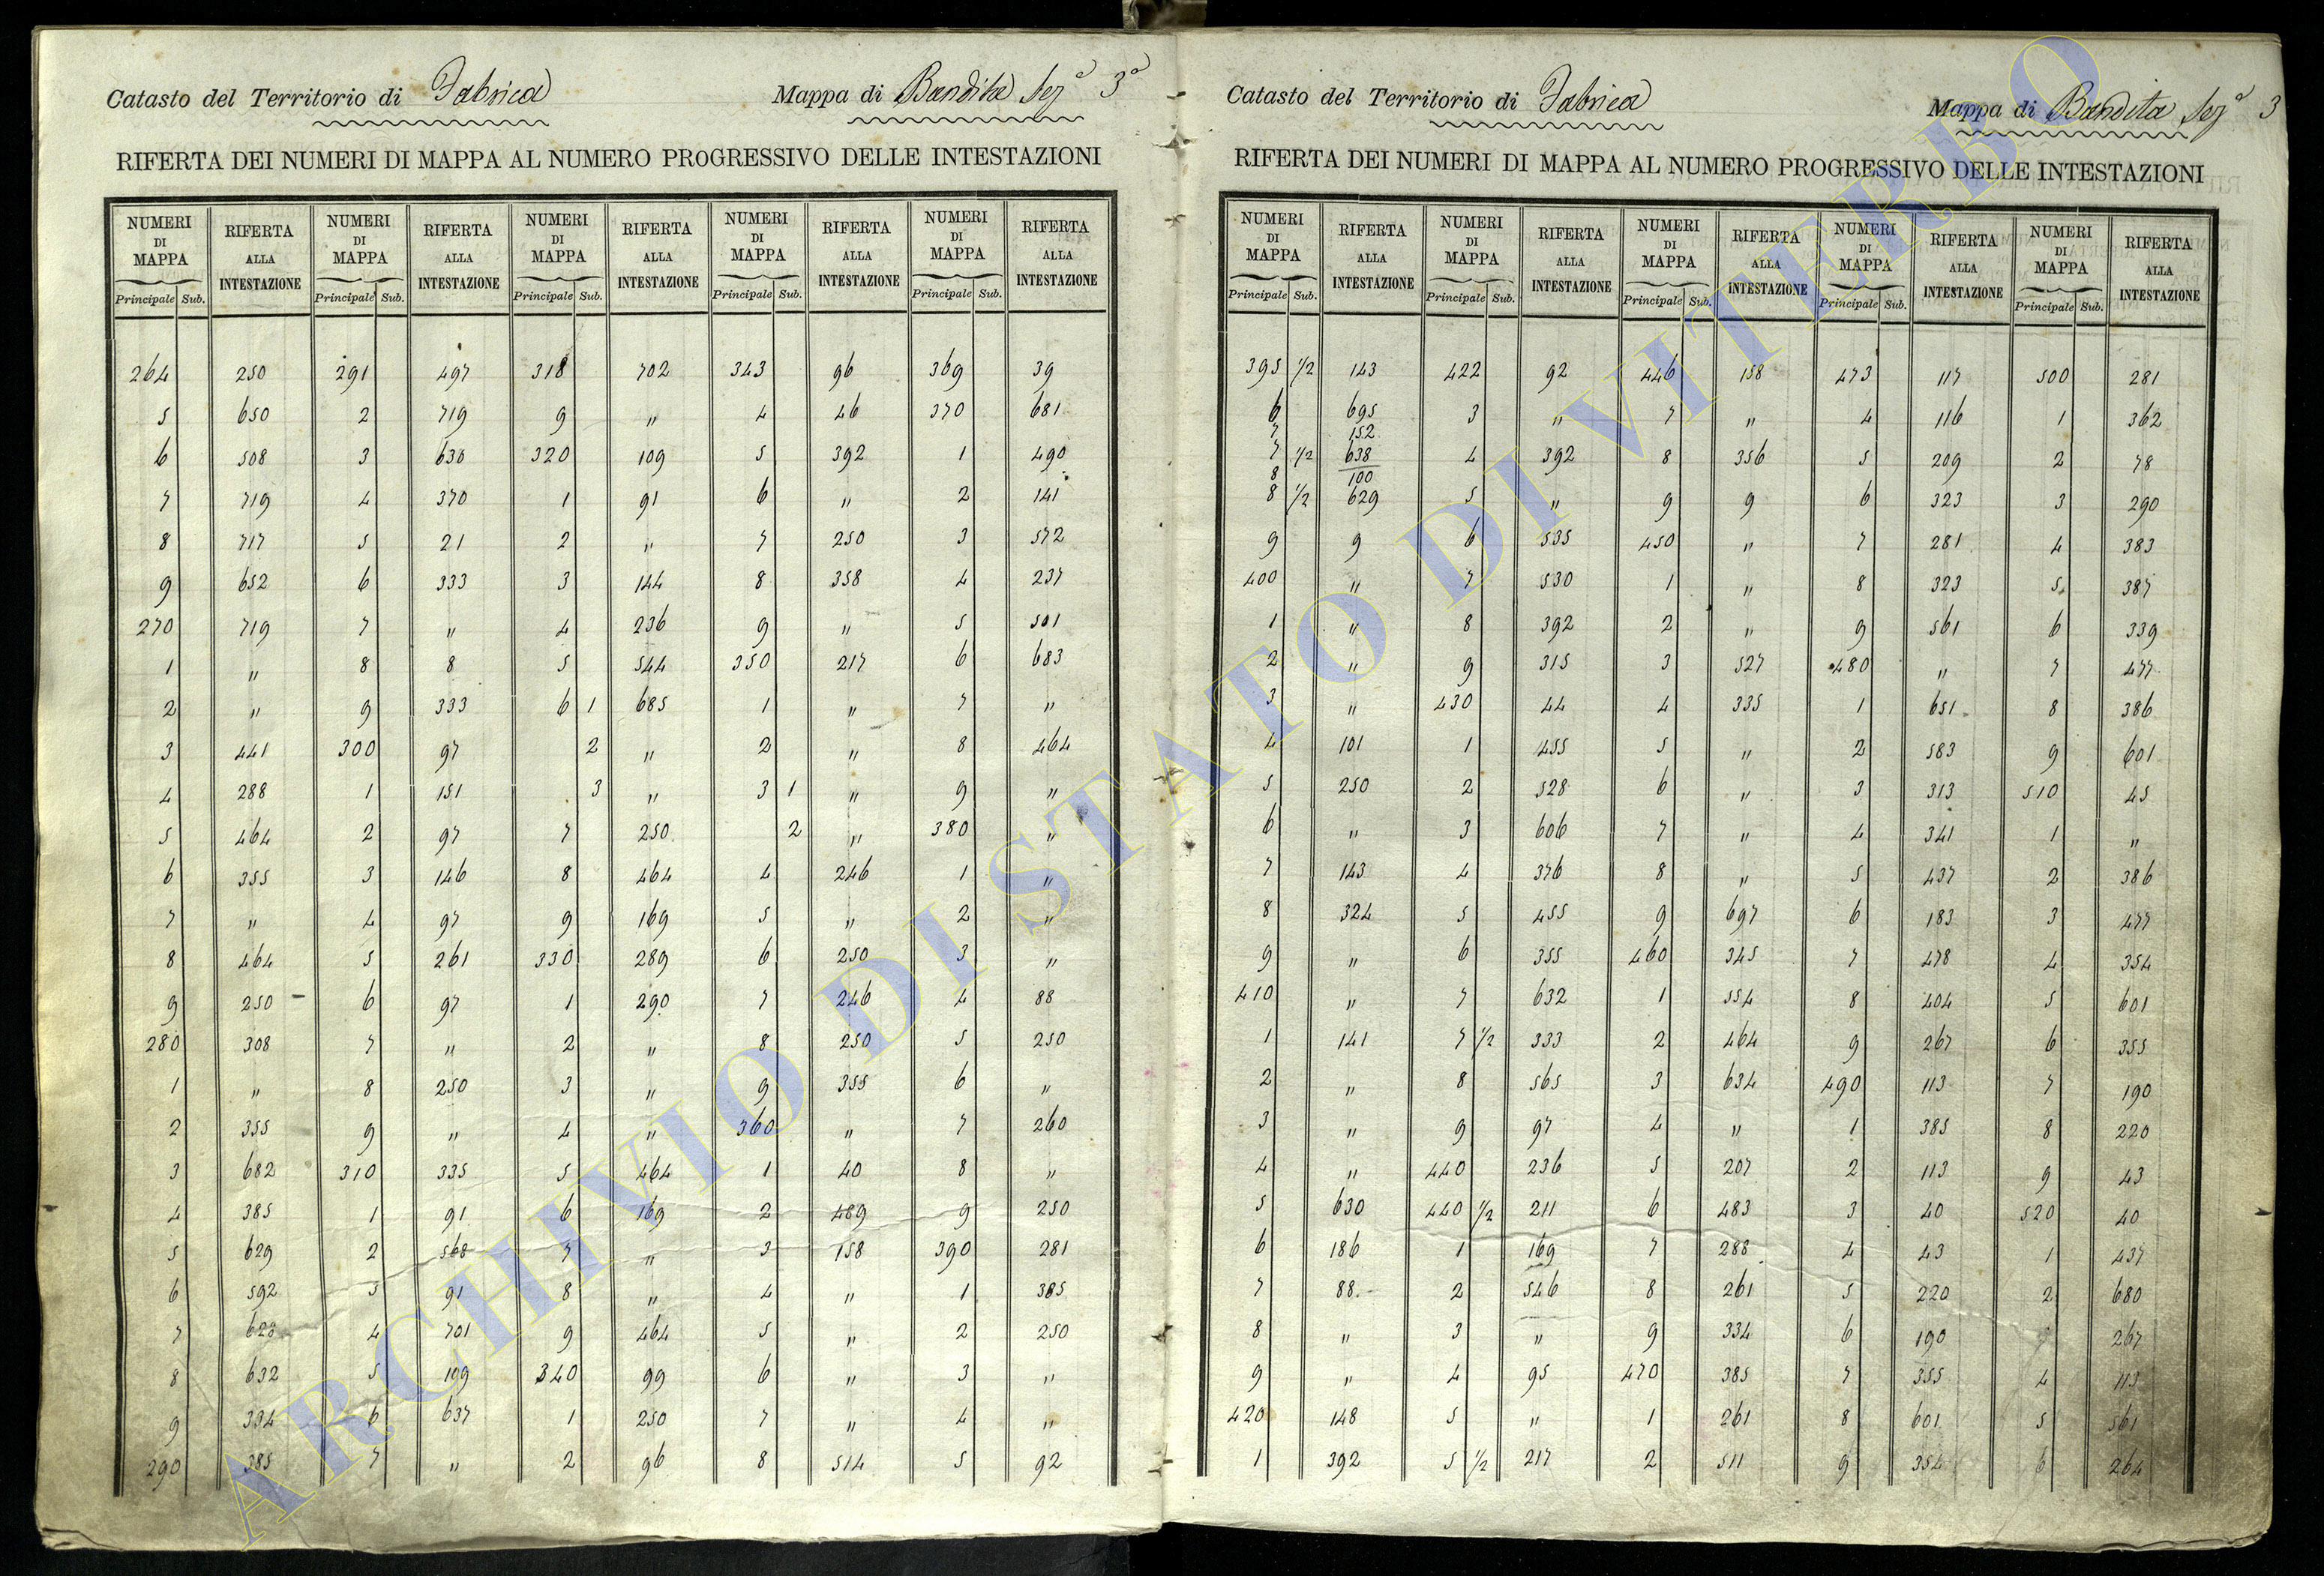 Catasto del Territorio di Fabrica Mappa di Bandita Sezª 3ª
RIFERTA DEI NUMERI DI MAPPA AL NUMERO PROGRESSIVO DELLE INTESTAZIONI
NUMERI DI MAPPA RIFERTA ALLA INTESTAZIONE NUMERI DI MAPPA RIFERTA ALLA INTESTAZIONE NUMERI DI MAPPA RIFERTA ALLA INTESTAZIONE NUMERI DI MAPPA RIFERTA ALLA INTESTAZIONE NUMERI DI MAPPA RIFERTA ALLA INTESTAZIONE
Principale Sub. Principale Sub. Principale Sub. Principale Sub. Principale Sub.
264 250 291 497 318 702 343 96 369 39
5 650 2 719 9 " 4 46 370 681
6 508 3 636 320 109 5 392 1 490
7 719 4 370 1 91 6 " 2 141
8 717 5 21 2 " 7 250 3 572
9 652 6 333 3 144 8 358 4 237
270 719 7 " 4 236 9 " 5 501
1 " 8 8 5 544 350 217 6 683
2 " 9 333 6 1 685 1 " 7 "
3 441 300 97 2 " 2 " 8 464
4 288 1 151 3 " 3 1 " 9 "
5 464 2 97 7 250 2 " 380 "
6 355 3 146 8 464 4 246 1 "
7 " 4 97 9 169 5 " 2 "
8 464 5 261 330 289 6 250 3 "
9 250 6 97 1 290 7 246 4 88
280 308 7 " 2 " 8 250 5 250
1 " 8 250 3 " 9 355 6 "
2 355 9 " 4 " 360 " 7 260
3 682 310 335 5 464 1 40 8 "
4 385 1 91 6 169 2 489 9 250
5 629 2 568 7 " 3 158 390 281
6 592 3 91 8 " 4 " 1 385
7 628 4 701 9 464 5 " 2 250
8 632 5 199 340 99 6 " 3 "
9 334 6 637 1 250 7 " 4 "
290 385 7 " 2 96 8 514 5 92
Catasto del Territorio di Fabrica Mappa di Bandita Sezª 3
RIFERTA DEI NUMERI DI MAPPA AL NUMERO PROGRESSIVO DELLE INTESTAZIONI
NUMERI DI MAPPA RIFERTA ALLA INTESTAZIONE NUMERI DI MAPPA RIFERTA ALLA INTESTAZIONE NUMERI DI MAPPA RIFERTA ALLA INTESTAZIONE NUMERI DI MAPPA RIFERTA ALLA INTESTAZIONE NUMERI DI MAPPA RIFERTA ALLA INTESTAZIONE
Principale Sub. Principale Sub. Principale Sub. Principale Sub. Principale Sub.
395 1/2 143 422 92 446 158 473 117 500 281
6 695 3 " 7 " 4 116 1 362
7 152
7 1/2 638 4 392 8 356 5 209 2 78
8 100
8 1/2 629 5 " 9 9 6 323 3 290
9 9 6 535 450 " 7 281 4 383
400 " 7 530 1 " 8 323 5 387
1 " 8 392 2 " 9 561 6 339
2 " 9 315 3 527 480 " 7 477
3 " 430 44 4 335 1 651 8 386
4 101 1 455 5 " 2 583 9 601
5 250 2 528 6 " 3 313 510 45
6 " 3 606 7 " 4 341 1 "
7 143 4 376 8 " 5 437 2 386
8 324 5 455 9 697 6 183 3 477
9 " 6 355 460 345 7 478 4 354
410 " 7 632 1 554 8 404 5 601
1 141 7 1/2 333 2 464 9 267 6 355
2 " 8 565 3 634 490 113 7 190
3 " 9 97 4 " 1 385 8 220
4 " 440 236 5 207 2 113 9 43
5 630 440 1/2 211 6 483 3 40 520 40
6 186 1 169 7 288 4 43 1 437
7 88 2 546 8 261 5 220 2 680
8 " 3 " 9 334 6 190 267
9 " 4 95 470 385 7 355 4 113
420 148 5 " 1 261 8 601 5 561
1 392 5 1/2 217 2 511 9 354 6 264
ARCHIVIO DI STATO DI VITERBO